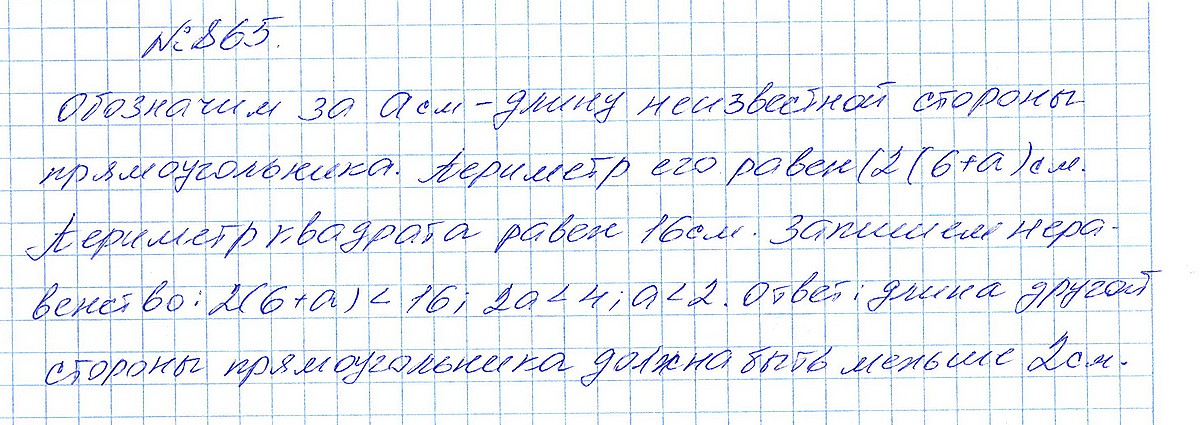 № 865.
Обозначим за a см – длину неизвестной стороны
прямоугольника. Периметр его равен (2(6+a) см.
Периметр квадрата равен 16 см. Запишем нера-
венство: 2(6+a) < 16; 2a < 4; a < 2. Ответ: длина другой
стороны прямоугольника должна быть меньше 2 см.